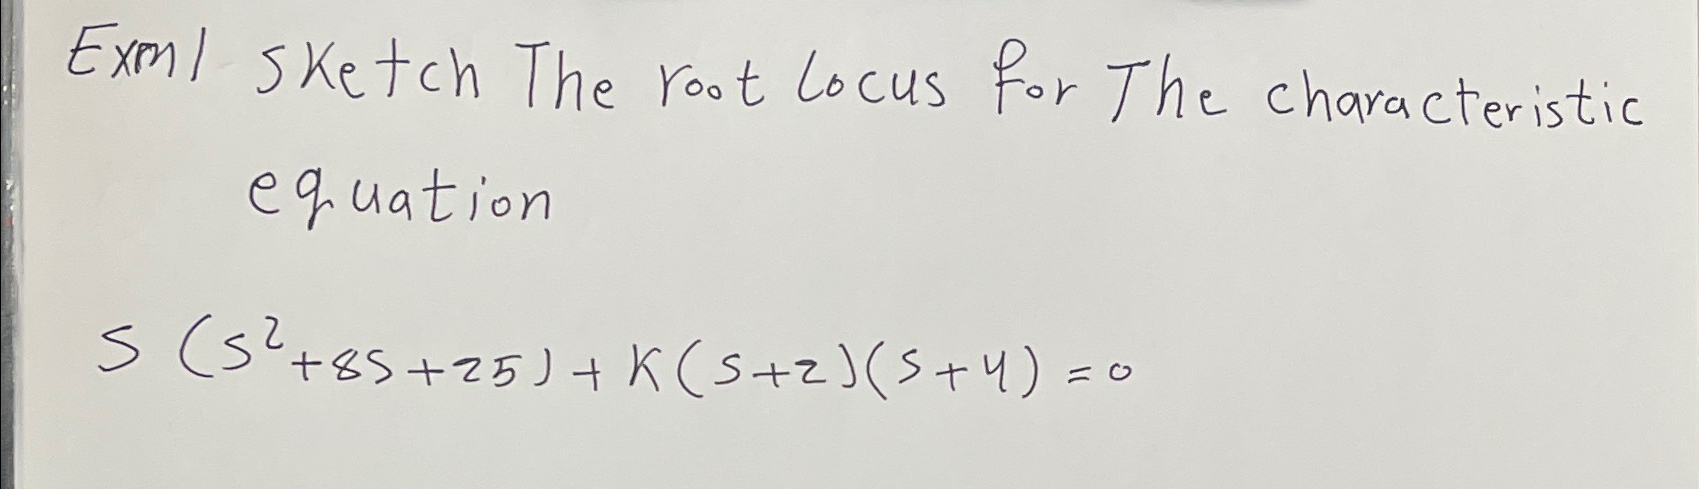 Exm/ sketch The root locus for The characteristic
equation
S (S²+8S+25)+K(S+2)(S+4)=0